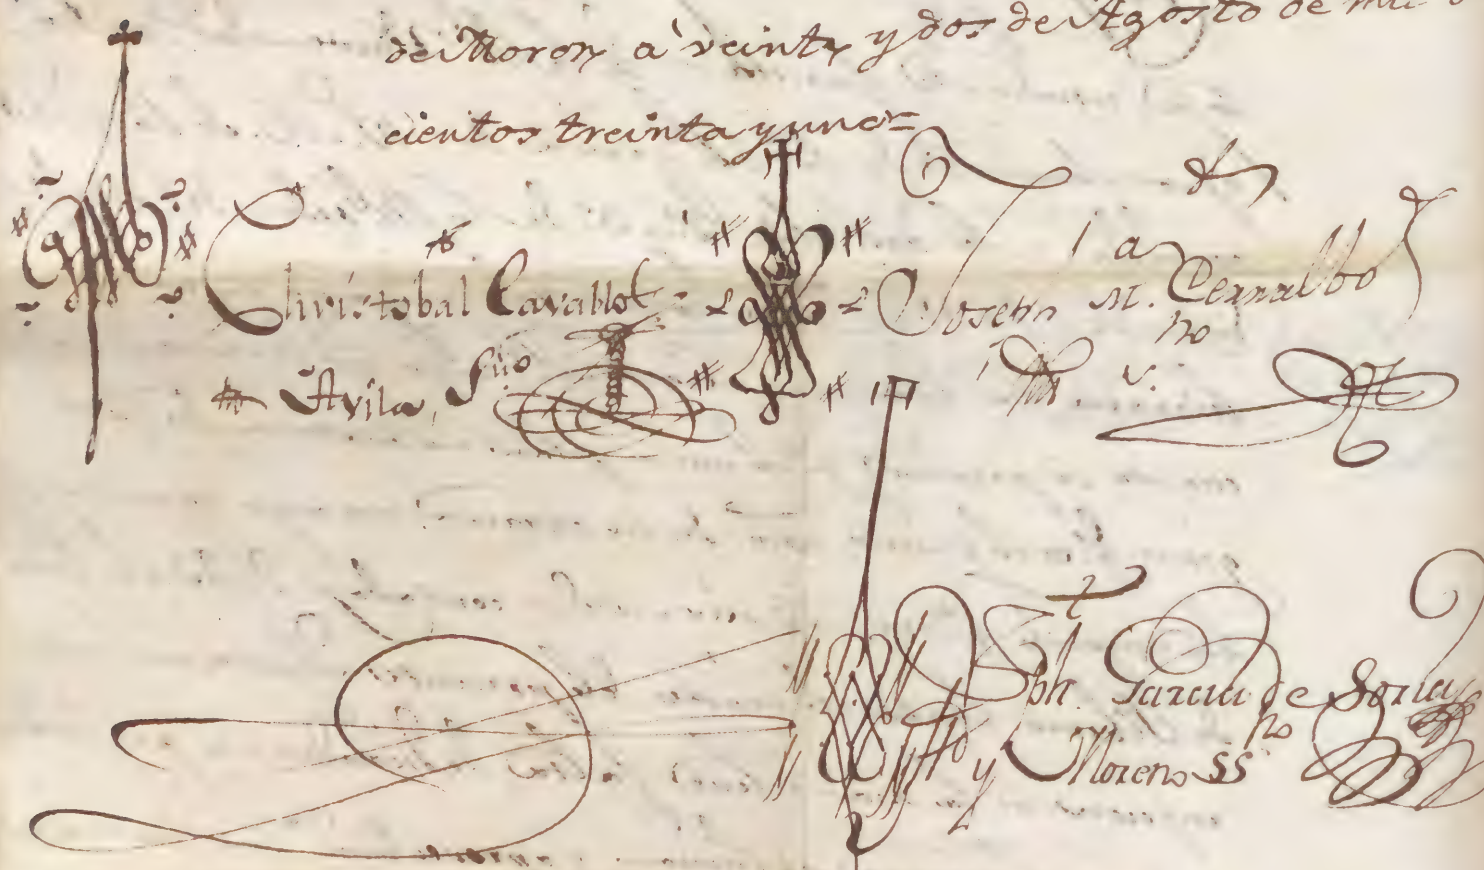 de Moron a veinte y dos de Agosto de mil
cientos treinta y uno =
Christobal Cavallo
Avila
Joseph M.ª Cernalbo
Jph Garcia de Soria
y Moreno SS.no